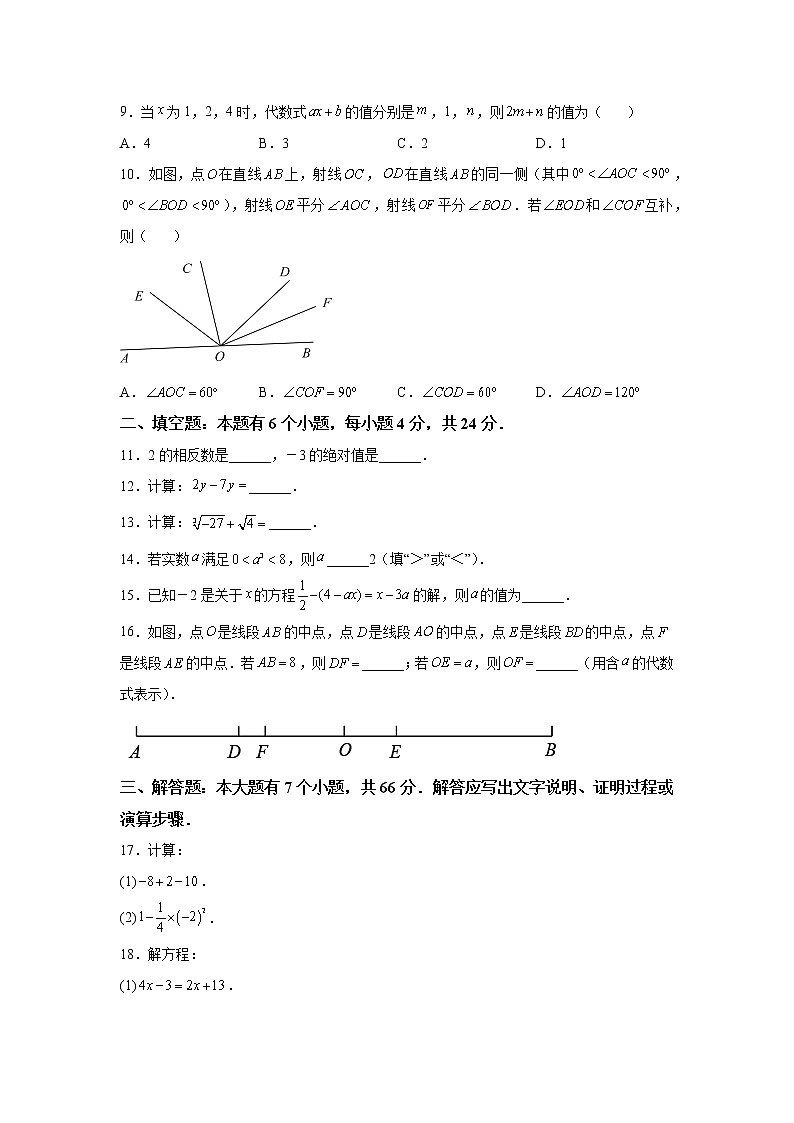 9．当x为1，2，4时，代数式ax+b的值分别是m，1，n，则2m+n的值为（　　）
A．4　　B．3　　C．2　　D．1
10．如图，点O在直线AB上，射线OC，OD在直线AB的同一侧（其中0°<∠AOC<90°，
0°<∠BOD<90°），射线OE平分∠AOC，射线OF平分∠BOD．若∠EOD和∠COF互补，
则（　　）
C
D
E
F
A
O
B
A．∠AOC=60°　　B．∠COF=90°　　C．∠COD=60°　　D．∠AOD=120°
二、填空题：本题有6个小题，每小题4分，共24分．
11．2的相反数是______，－3的绝对值是______．
12．计算：2y−7y=______．
13．计算：∛−27+√4=______．
14．若实数a满足0<a³<8，则a______2（填“＞”或“＜”）．
15．已知－2是关于x的方程1/2−(4−ax)=x−3a的解，则a的值为______．
16．如图，点O是线段AB的中点，点D是线段AO的中点，点E是线段BD的中点，点F
是线段AE的中点．若AB=8，则DF=______；若OE=a，则OF=______（用含a的代数
式表示）．
A D F O E B
三、解答题：本大题有7个小题，共66分．解答应写出文字说明、证明过程或
演算步骤．
17．计算：
(1)−8+2−10．
(2)1−1/4×(−2)²．
18．解方程：
(1)4x−3=2x+13．